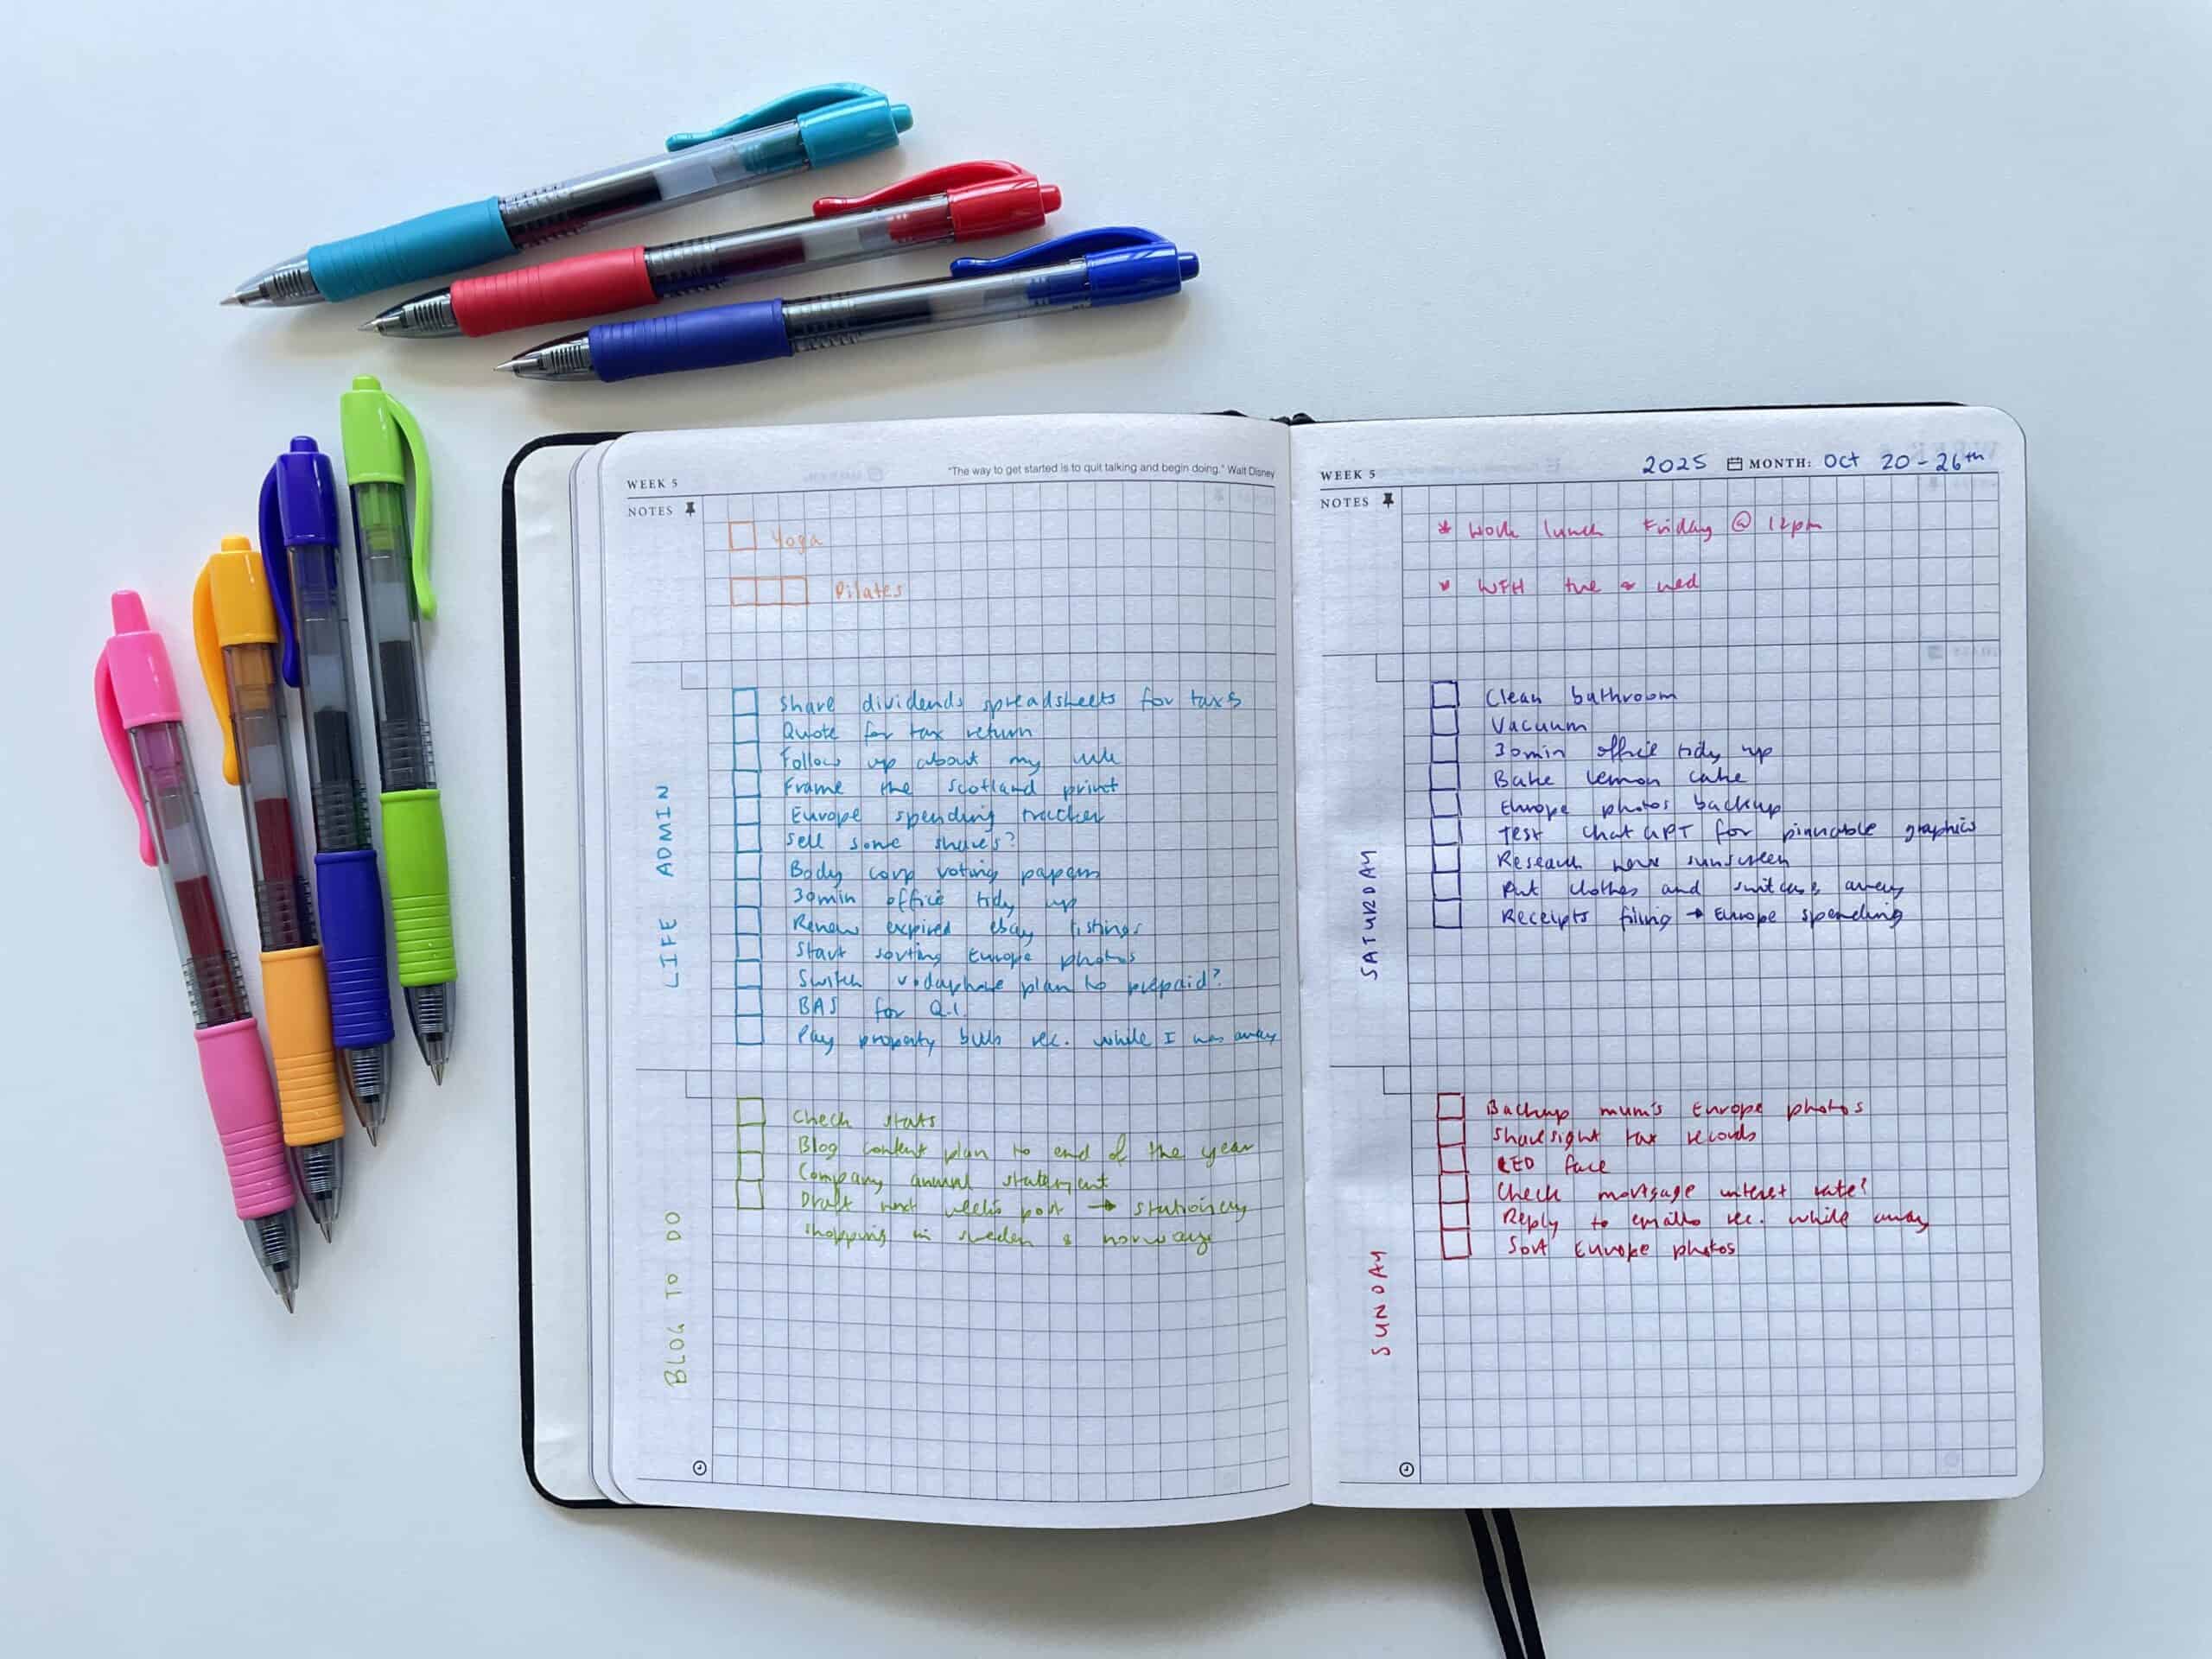 WEEK 5
"The way to get started is to quit talking and begin doing." Walt Disney
NOTES
Yoga
Pilates
LIFE ADMIN
Share dividends spreadsheets for taxs
Quote for tax return
Follow up about my
Frame the Scotland print
Europe spending tracker
Sell some shares?
Body corp voting papers
30min office tidy up
Renew expired ebay listings
Start sorting Europe photos
Switch vodaphone plan to prepaid?
BAS for Q.1.
Pay property bills rec. while I was away
BLOG TO DO
Check stats
Blog content plan to end of the year
Company annual statement
Draft next week's post → stationery
shopping in sweden & norway
WEEK 5
2025 MONTH: Oct 20-26th
NOTES
* Work lunch Friday @ 12pm
* WFH tue & wed
SATURDAY
Clean bathroom
Vacuum
30min office tidy up
Bake lemon cake
Europe photos backup
Test ChatGPT for pinnable graphics
Research new sunscreen
Put clothes and suitcase away
Receipts filing → Europe spending
SUNDAY
Backup mum's Europe photos
Sharesight tax records
LED face
Check mortgage interest rate?
Reply to emails rec. while away
Sort Europe photos